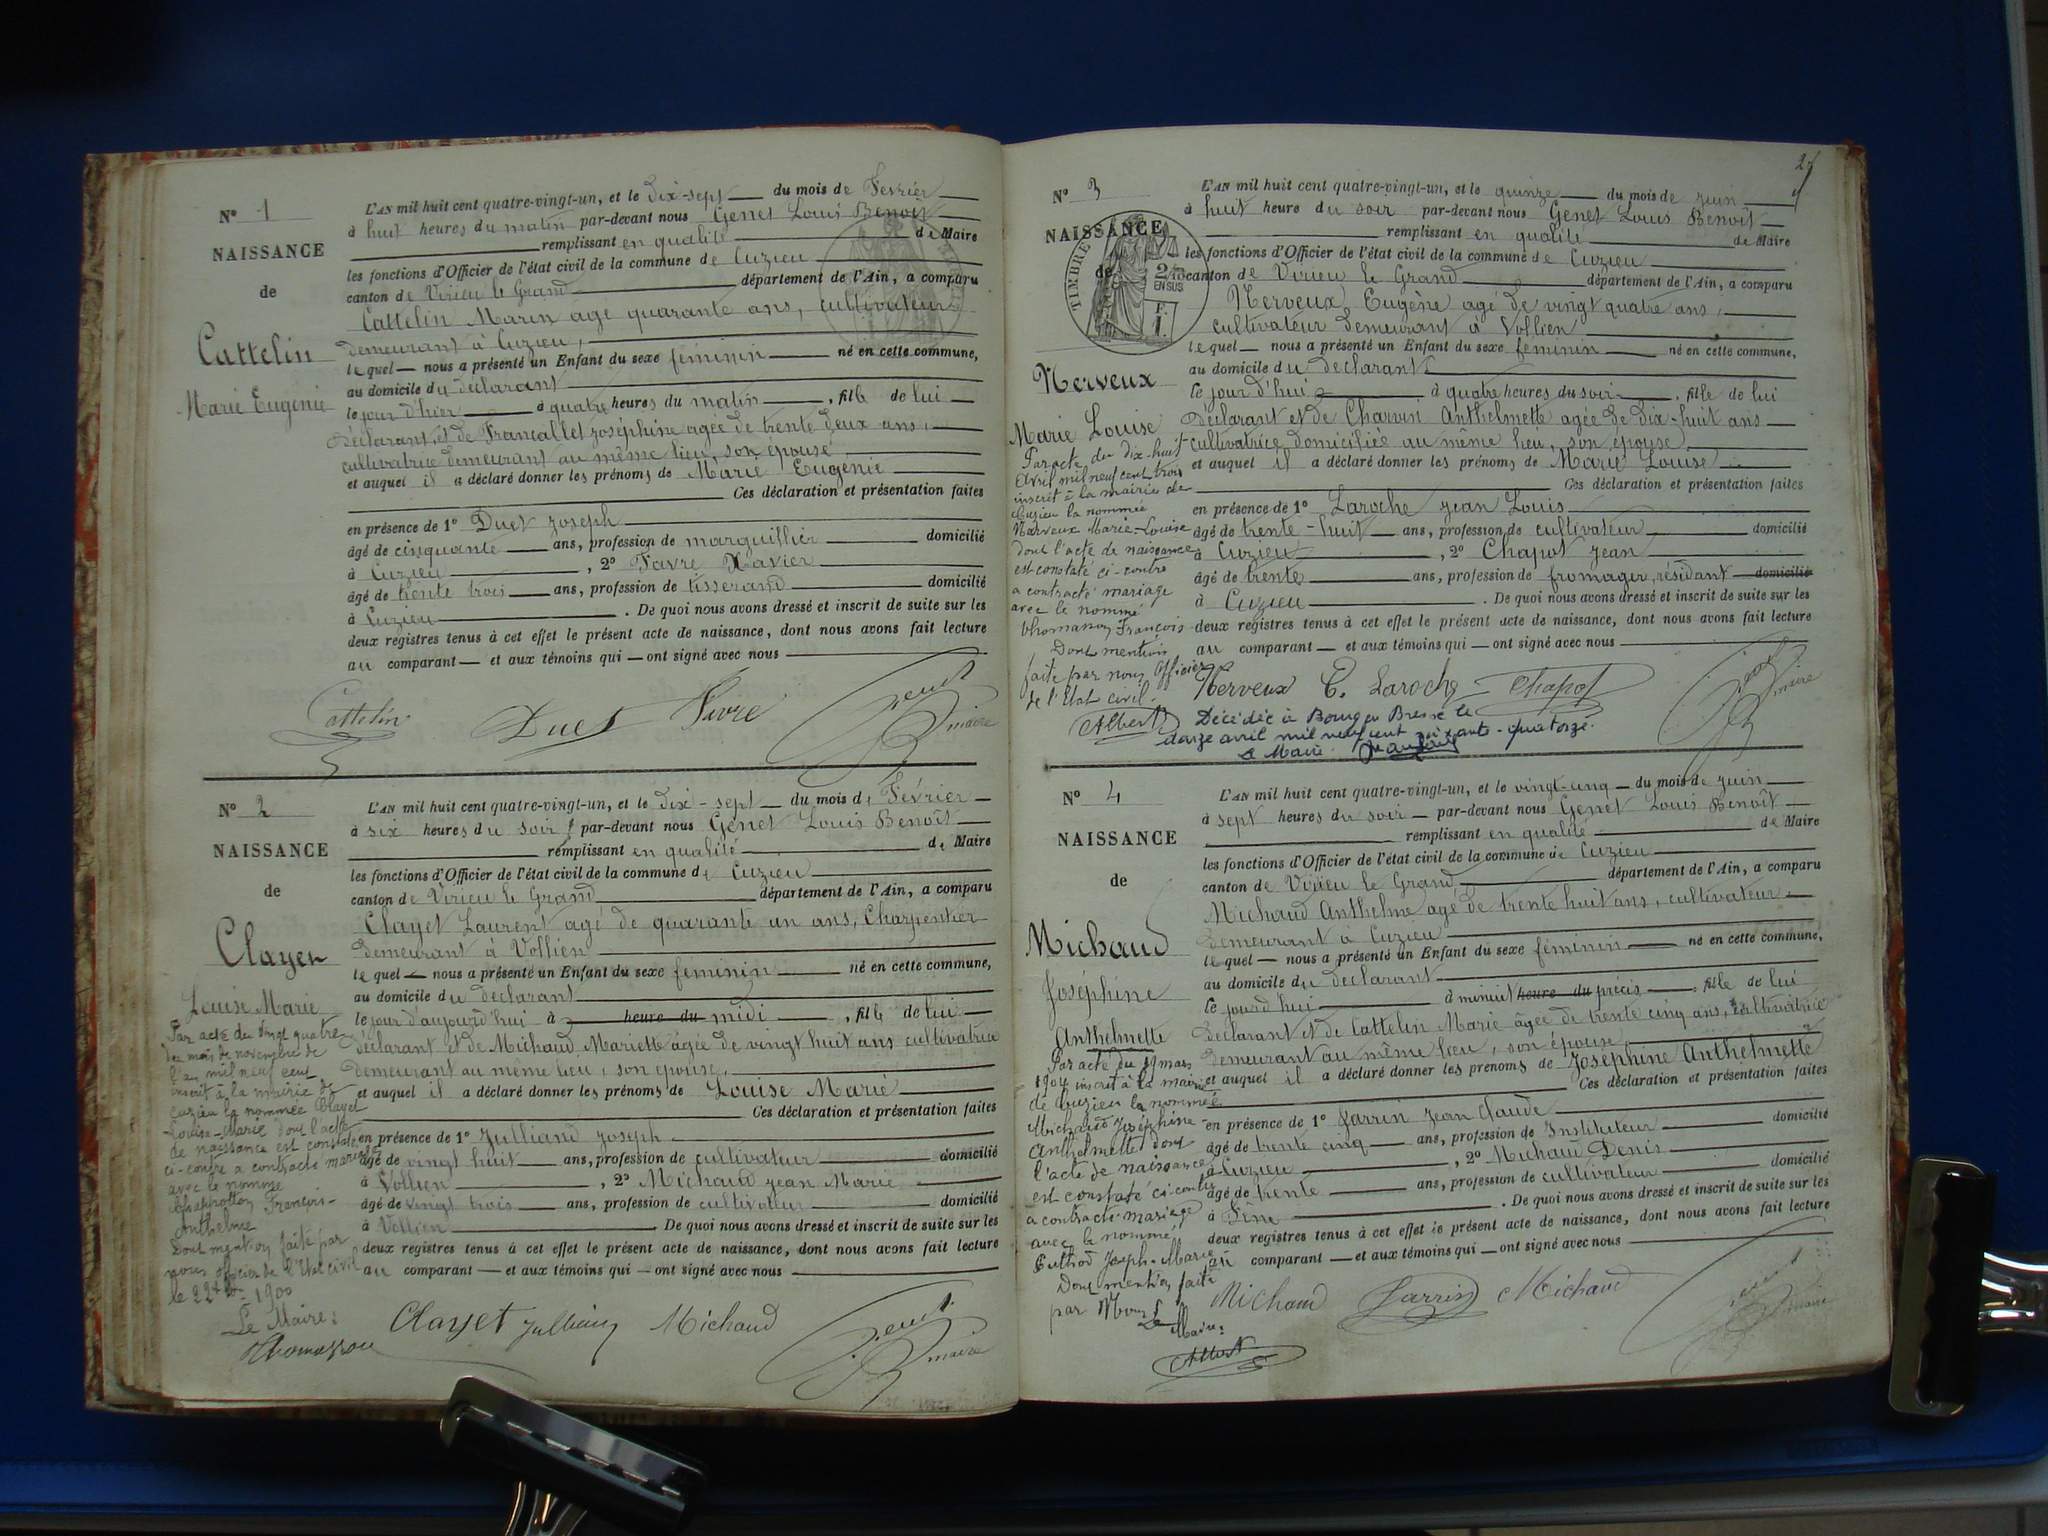 N° 1
NAISSANCE
de
Cattelin
Marie Eugénie
L'AN mil huit cent quatre-vingt-un, et le dix-sept du mois de Février
à huit heures du matin par-devant nous Genet Louis Benoît
remplissant en qualité de Maire
les fonctions d'Officier de l'état civil de la commune de Cuzieu
canton de Virieu le Grand département de l'Ain, a comparu
Cattelin Marin agé quarante ans, cultivateur
demeurant à Cuzieu,
lequel nous a présenté un Enfant du sexe féminin né en cette commune,
au domicile du déclarant
le jour d'hier à quatre heures du matin, fille de lui
déclarant, et de Francallet Joséphine agée de trente deux ans,
cultivatrice demeurant au même lieu, son épouse,
et auquel il a déclaré donner les prénoms de Marie Eugénie
Ces déclaration et présentation faites
en présence de 1° Duet Joseph
âgé de cinquante ans, profession de marguillier domicilié
à Cuzieu, 2° Favre Xavier
âgé de trente trois ans, profession de tisserand domicilié
à Cuzieu. De quoi nous avons dressé et inscrit de suite sur les
deux registres tenus à cet effet le présent acte de naissance, dont nous avons fait lecture
au comparant et aux témoins qui ont signé avec nous
Cattelin Duet Favre Genet maire
N° 2
NAISSANCE
de
Clayet
Louise Marie
Par acte du vingt quatre
du mois de novembre de
l'an mil neuf cent
inscrit à la mairie de
Cuzieu la nommée Clayet
Louise-Marie dont l'acte
de naissance est constaté
ci-contre a contracté mariage
avec le nommé
François-
Anthelme
Dont mention faite par
nous officier de l'Etat civil
le 22 1900
Le Maire:
Thomasson
L'AN mil huit cent quatre-vingt-un, et le dix-sept du mois de Février
à six heures du soir par-devant nous Genet Louis Benoît
remplissant en qualité de Maire
les fonctions d'Officier de l'état civil de la commune de Cuzieu
canton de Virieu le Grand département de l'Ain, a comparu
Clayet Laurent agé de quarante un ans, Charpentier
demeurant à Vollien
lequel nous a présenté un Enfant du sexe féminin né en cette commune,
au domicile du déclarant
le jour d'aujourd'hui à heure du midi, fille de lui
déclarant et de Michaud Mariette agée de vingt huit ans cultivatrice
demeurant au même lieu, son épouse,
et auquel il a déclaré donner les prénoms de Louise Marie
Ces déclaration et présentation faites
en présence de 1° Julliand Joseph
âgé de vingt huit ans, profession de cultivateur domicilié
à Vollien, 2° Michaud Jean Marie
âgé de vingt trois ans, profession de cultivateur domicilié
à Vollien De quoi nous avons dressé et inscrit de suite sur les
deux registres tenus à cet effet le présent acte de naissance, dont nous avons fait lecture
au comparant et aux témoins qui ont signé avec nous
Clayet Julliand Michaud Genet maire
2
N° 3
NAISSANCE
de
TIMBRE
2/10
EN SUS
Nerveux
Marie Louise
Par acte du dix-huit
Avril mil neuf cent trois
inscrit à la mairie de
Cuzieu la nommée
Nerveux Marie-Louise
dont l'acte de naissance
est constaté ci-contre
a contracté mariage
avec le nommé
Thomasson François
Dont mention
faite par nous Officier
de l'Etat civil
Albert
L'AN mil huit cent quatre-vingt-un, et le quinze du mois de juin
à huit heure du soir par-devant nous Genet Louis Benoît
remplissant en qualité de Maire
les fonctions d'Officier de l'état civil de la commune de Cuzieu
canton de Virieu le Grand département de l'Ain, a comparu
Nerveux Eugène agé de vingt quatre ans,
cultivateur demeurant à Vollien
lequel nous a présenté un Enfant du sexe féminin né en cette commune,
au domicile du déclarant
le jour d'hui à quatre heures du soir, fille de lui
déclarant et de Charvin Anthelmette agée de dix-huit ans
cultivatrice domiciliée au même lieu, son épouse
et auquel il a déclaré donner les prénoms de Marie Louise
Ces déclaration et présentation faites
en présence de 1° Laroche Jean Louis
âgé de trente-huit ans, profession de cultivateur domicilié
à Cuzieu, 2° Chapot Jean
âgé de trente ans, profession de fromager, résidant domicilié
à Cuzieu. De quoi nous avons dressé et inscrit de suite sur les
deux registres tenus à cet effet le présent acte de naissance, dont nous avons fait lecture
au comparant et aux témoins qui ont signé avec nous
Nerveux E. Laroche Chapot Genet maire
Décédée à Bourg en Bresse le
douze avril mil neuf cent soixante-quatorze.
Le Maire
N° 4
NAISSANCE
de
Michaud
Joséphine
Anthelmette
Par acte du 19 mars
1904 inscrit à la mairie
de Cuzieu la nommée
Michaud Joséphine
Anthelmette dont
l'acte de naissance
est constaté ci-contre
a contracté mariage
avec le nommé
Joseph-Marie
Dont mention faite
par Nous
Le Maire:
Albert
L'AN mil huit cent quatre-vingt-un, et le vingt-cinq du mois de juin
à sept heures du soir par-devant nous Genet Louis Benoît
remplissant en qualité de Maire
les fonctions d'Officier de l'état civil de la commune de Cuzieu
canton de Virieu le Grand département de l'Ain, a comparu
Michaud Anthelme agé de trente huit ans, cultivateur
demeurant à Cuzieu
lequel nous a présenté un Enfant du sexe féminin né en cette commune,
au domicile du déclarant
le jourd'hui à minuit heure du précis, fille de lui
déclarant et de Cattelin Marie âgée de trente cinq ans, cultivatrice
demeurant au même lieu, son épouse
et auquel il a déclaré donner les prénoms de Joséphine Anthelmette
Ces déclaration et présentation faites
en présence de 1° Jarrin Jean Claude
âgé de trente cinq ans, profession de Instituteur domicilié
à Cuzieu, 2° Michaud Denis
âgé de trente ans, profession de cultivateur domicilié
à. De quoi nous avons dressé et inscrit de suite sur les
deux registres tenus à cet effet le présent acte de naissance, dont nous avons fait lecture
au comparant et aux témoins qui ont signé avec nous
Michaud Jarrin Michaud Genet maire